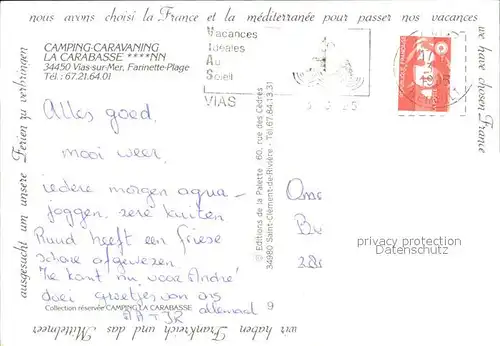 nous avons choisi la France et la méditerranée pour passer nos vacances
we have chosen France
CAMPING-CARAVANING
LA CARABASSE ****NN
34450 Vias-sur-Mer, Farinette-Plage
Tél.: 67.21.64.01
Vacances
Idéales
Au
Soleil
VIAS
Alles goed,
mooi weer,
iedere morgen aqua-
joggen, zere kuiten
Ruud heeft een friese
schone afgewezen
Ze komt nu voor André
doei groetjes van ons
allemaal
Collection réservée CAMPING LA CARABASSE
9
© Editions de la Palette 60, rue des Cèdres
34980 Saint-Clément-de-Rivière - Tél.67.84.13.31
privacy protection
Datenschutz
wir haben Frankreich und das Mittelmeer
ausgesucht um unsere Ferien zu verbringen